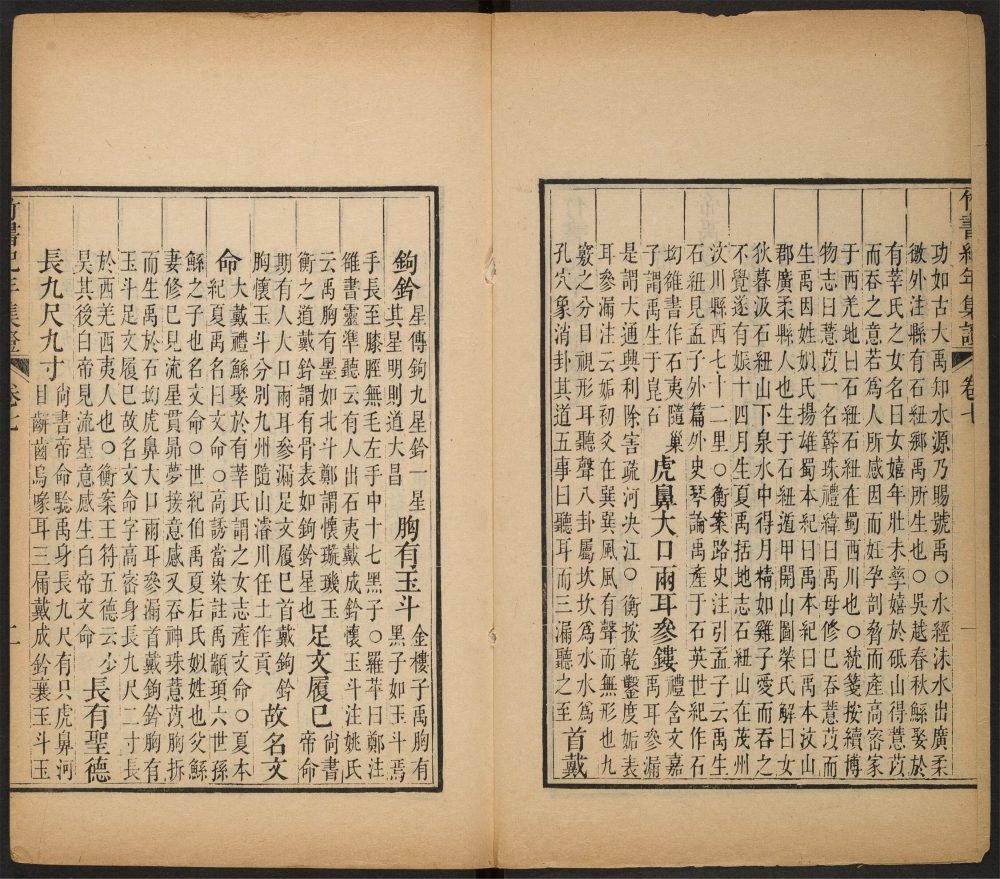 竹書紀年集證 卷七 一
功如古大禹知水源乃賜號禹○水經沬水出廣柔
徼外注縣有石紐鄉禹所生也○吳越春秋鯀娶於
有莘氏之女名曰女嬉年壯未孳嬉於砥山得薏苡
而吞之意若爲人所感因而妊孕剖脅而產高密家
于西羌地曰石紐石紐在蜀西川也○統箋按續博
物志曰薏苡一名簳珠禮緯曰禹母修巳吞薏苡而
生禹因姓姒氏揚雄蜀本紀曰禹本汶山
郡廣柔縣人也生于石紐遁甲開山圖榮氏解曰女
狄暮汲石紐山下泉水中得月精如雞子愛而吞之
不覺遂有娠十四月生夏禹括地志石紐山在茂州
汶川縣西七十二里○衡案路史注引孟子云禹生
石紐見孟子外篇外史琴論禹產于石英世紀作石
㘬雒書作石夷隨巢
子謂禹生于崑石
虎鼻大口兩耳參鏤
禮含文嘉
禹耳參漏
是謂大通興利除害疏河決江○衡按乾鑿度姤表
耳參漏注云姤初爻在巽巽風有聲而無形也九
竅之分目視形耳聽聲八卦屬坎坎爲水水爲
孔穴象消卦其道五事曰聽耳而三漏聽之至
首戴
鉤鈐
星傳鉤九星鈐一星
其星明則道大昌
胸有玉斗
金樓子禹胸有
黑子如玉斗焉
手長至膝脛無毛左手中十七黑子○羅苹曰鄭注
雒書靈準聽云有人出石夷戴成鈐懷玉斗注姚氏
云禹胸有墨如北斗鄭謂懷璇璣玉
衡之道戴鈐謂有骨表如鉤鈐星也
足文履巳
尚書
帝命
期有人大口兩耳參漏足文履巳首戴鉤鈐
胸懷玉斗分別九州隨山濬川任土作貢
故名文
命
大戴禮鯀娶於有莘氏謂之女志產文命○夏本
紀夏禹名曰文命○高誘當染註禹顓頊六世孫
鯀之子也名文命○世紀伯禹夏后氏姒姓也父鯀
妻修巳見流星貫昴夢接意感又吞神珠薏苡胸拆
而生禹於石㘬虎鼻大口兩耳參漏首戴鉤鈐胸有
玉斗足文履巳故名文命字高密身長九尺二寸長
於西羌西夷人也○衡案王符五德云少
昊其後白帝見流星意感生白帝文命
長有聖德
長九尺九寸
尚書帝命驗禹身長九尺有只虎鼻河
目齞齒鳥喙耳三漏戴成鈐襄玉斗玉
竹書紀年集證 卷七 二